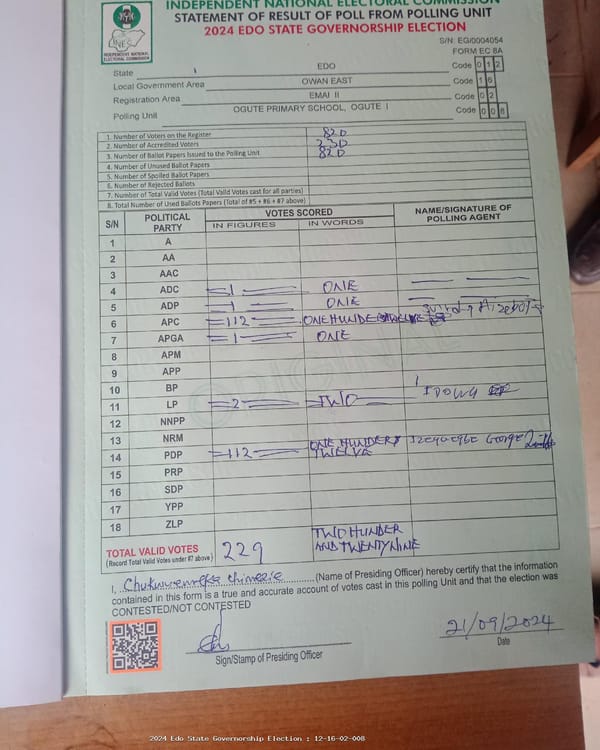 INDEPENDENT NATIONAL ELECTORAL COMMISSION
STATEMENT OF RESULT OF POLL FROM POLLING UNIT
2024 EDO STATE GOVERNORSHIP ELECTION
INEC
INDEPENDENT NATIONAL ELECTORAL COMMISSION
S/N: EG/0004054
FORM EC 8A
State EDO Code 0 1 2
Local Government Area OWAN EAST Code 1 6
Registration Area EMAI II Code 0 2
Polling Unit OGUTE PRIMARY SCHOOL, OGUTE I Code 0 0 8
1. Number of Voters on the Register 820
2. Number of Accredited Voters 230
3. Number of Ballot Papers Issued to the Polling Unit 820
4. Number of Unused Ballot Papers
5. Number of Spoiled Ballot Papers
6. Number of Rejected Ballots
7. Number of Total Valid Votes (Total Valid Votes cast for all parties)
8. Total Number of Used Ballots Papers (Total of #5 + #6 + #7 above)
S/N POLITICAL PARTY VOTES SCORED NAME/SIGNATURE OF POLLING AGENT
IN FIGURES IN WORDS
1 A
2 AA
3 AAC
4 ADC 1 ONE
5 ADP 1 ONE
6 APC 112 ONE HUNDER
7 APGA 1 ONE
8 APM
9 APP
10 BP
11 LP 2 TWO
12 NNPP
13 NRM
14 PDP 112 ONE HUNDER TWELVE George
15 PRP
16 SDP
17 YPP
18 ZLP
TOTAL VALID VOTES 229 TWO HUNDER AND TWENTY NINE
(Record Total Valid Votes under #7 above)
I, Chimezie (Name of Presiding Officer) hereby certify that the information
contained in this form is a true and accurate account of votes cast in this polling Unit and that the election was
CONTESTED/NOT CONTESTED
21/09/2024
Sign/Stamp of Presiding Officer Date
2024 Edo State Governorship Election : 12-16-02-008